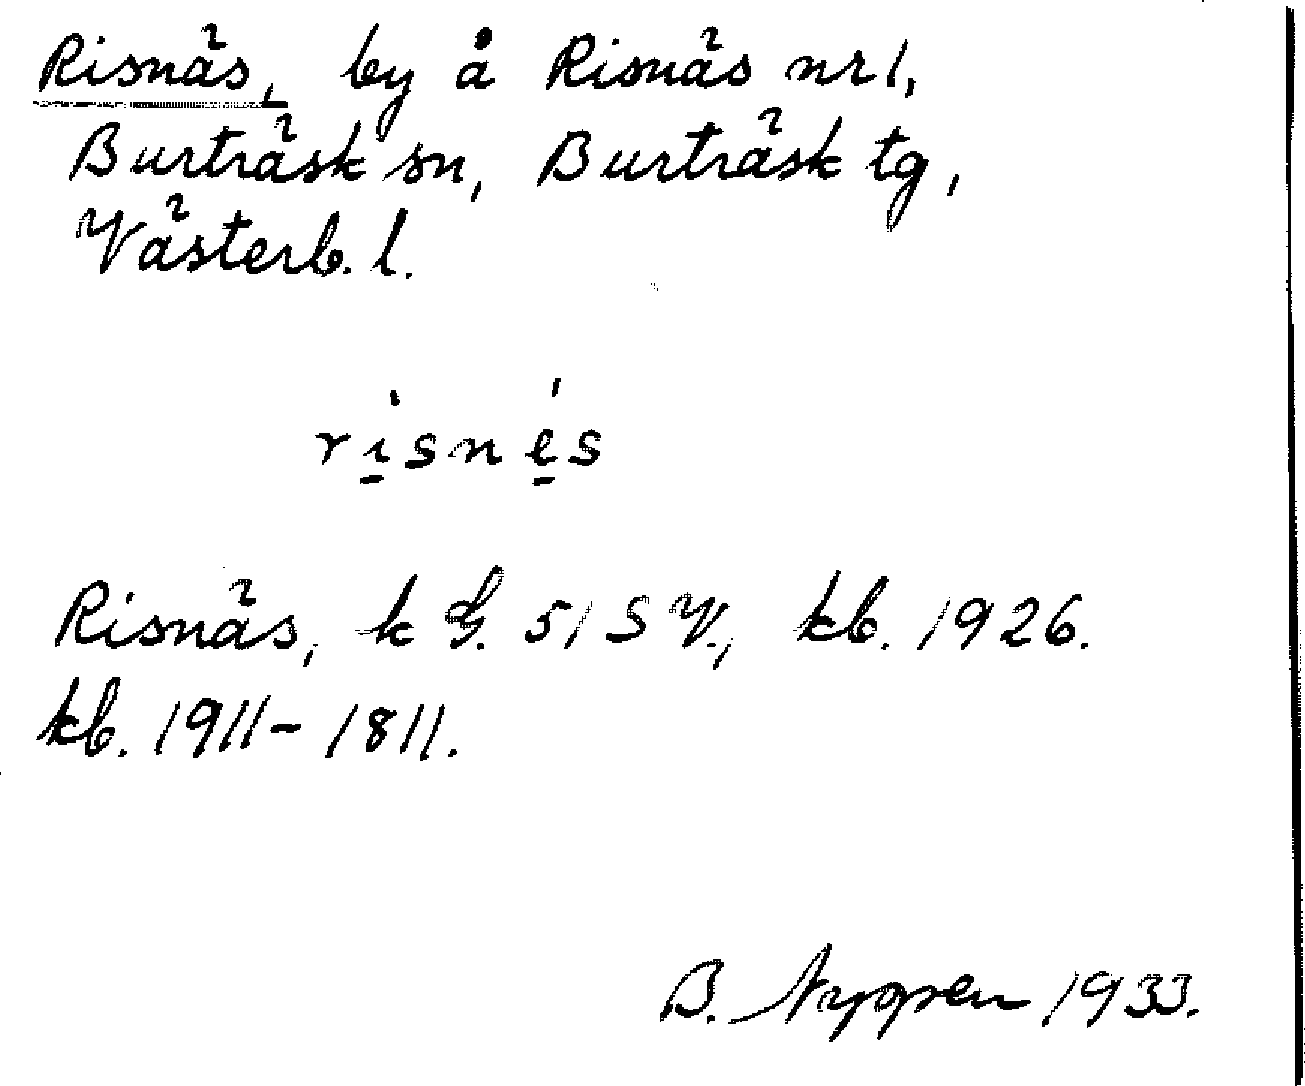 Risnäs, by å Risnäs nr 1,
Burträsk sn, Burträsk tg,
Västerb. l.
ri̱snés
Risnäs, k G. 51 S V., kb. 1926.
kb. 1911-1811.
B. 1933.